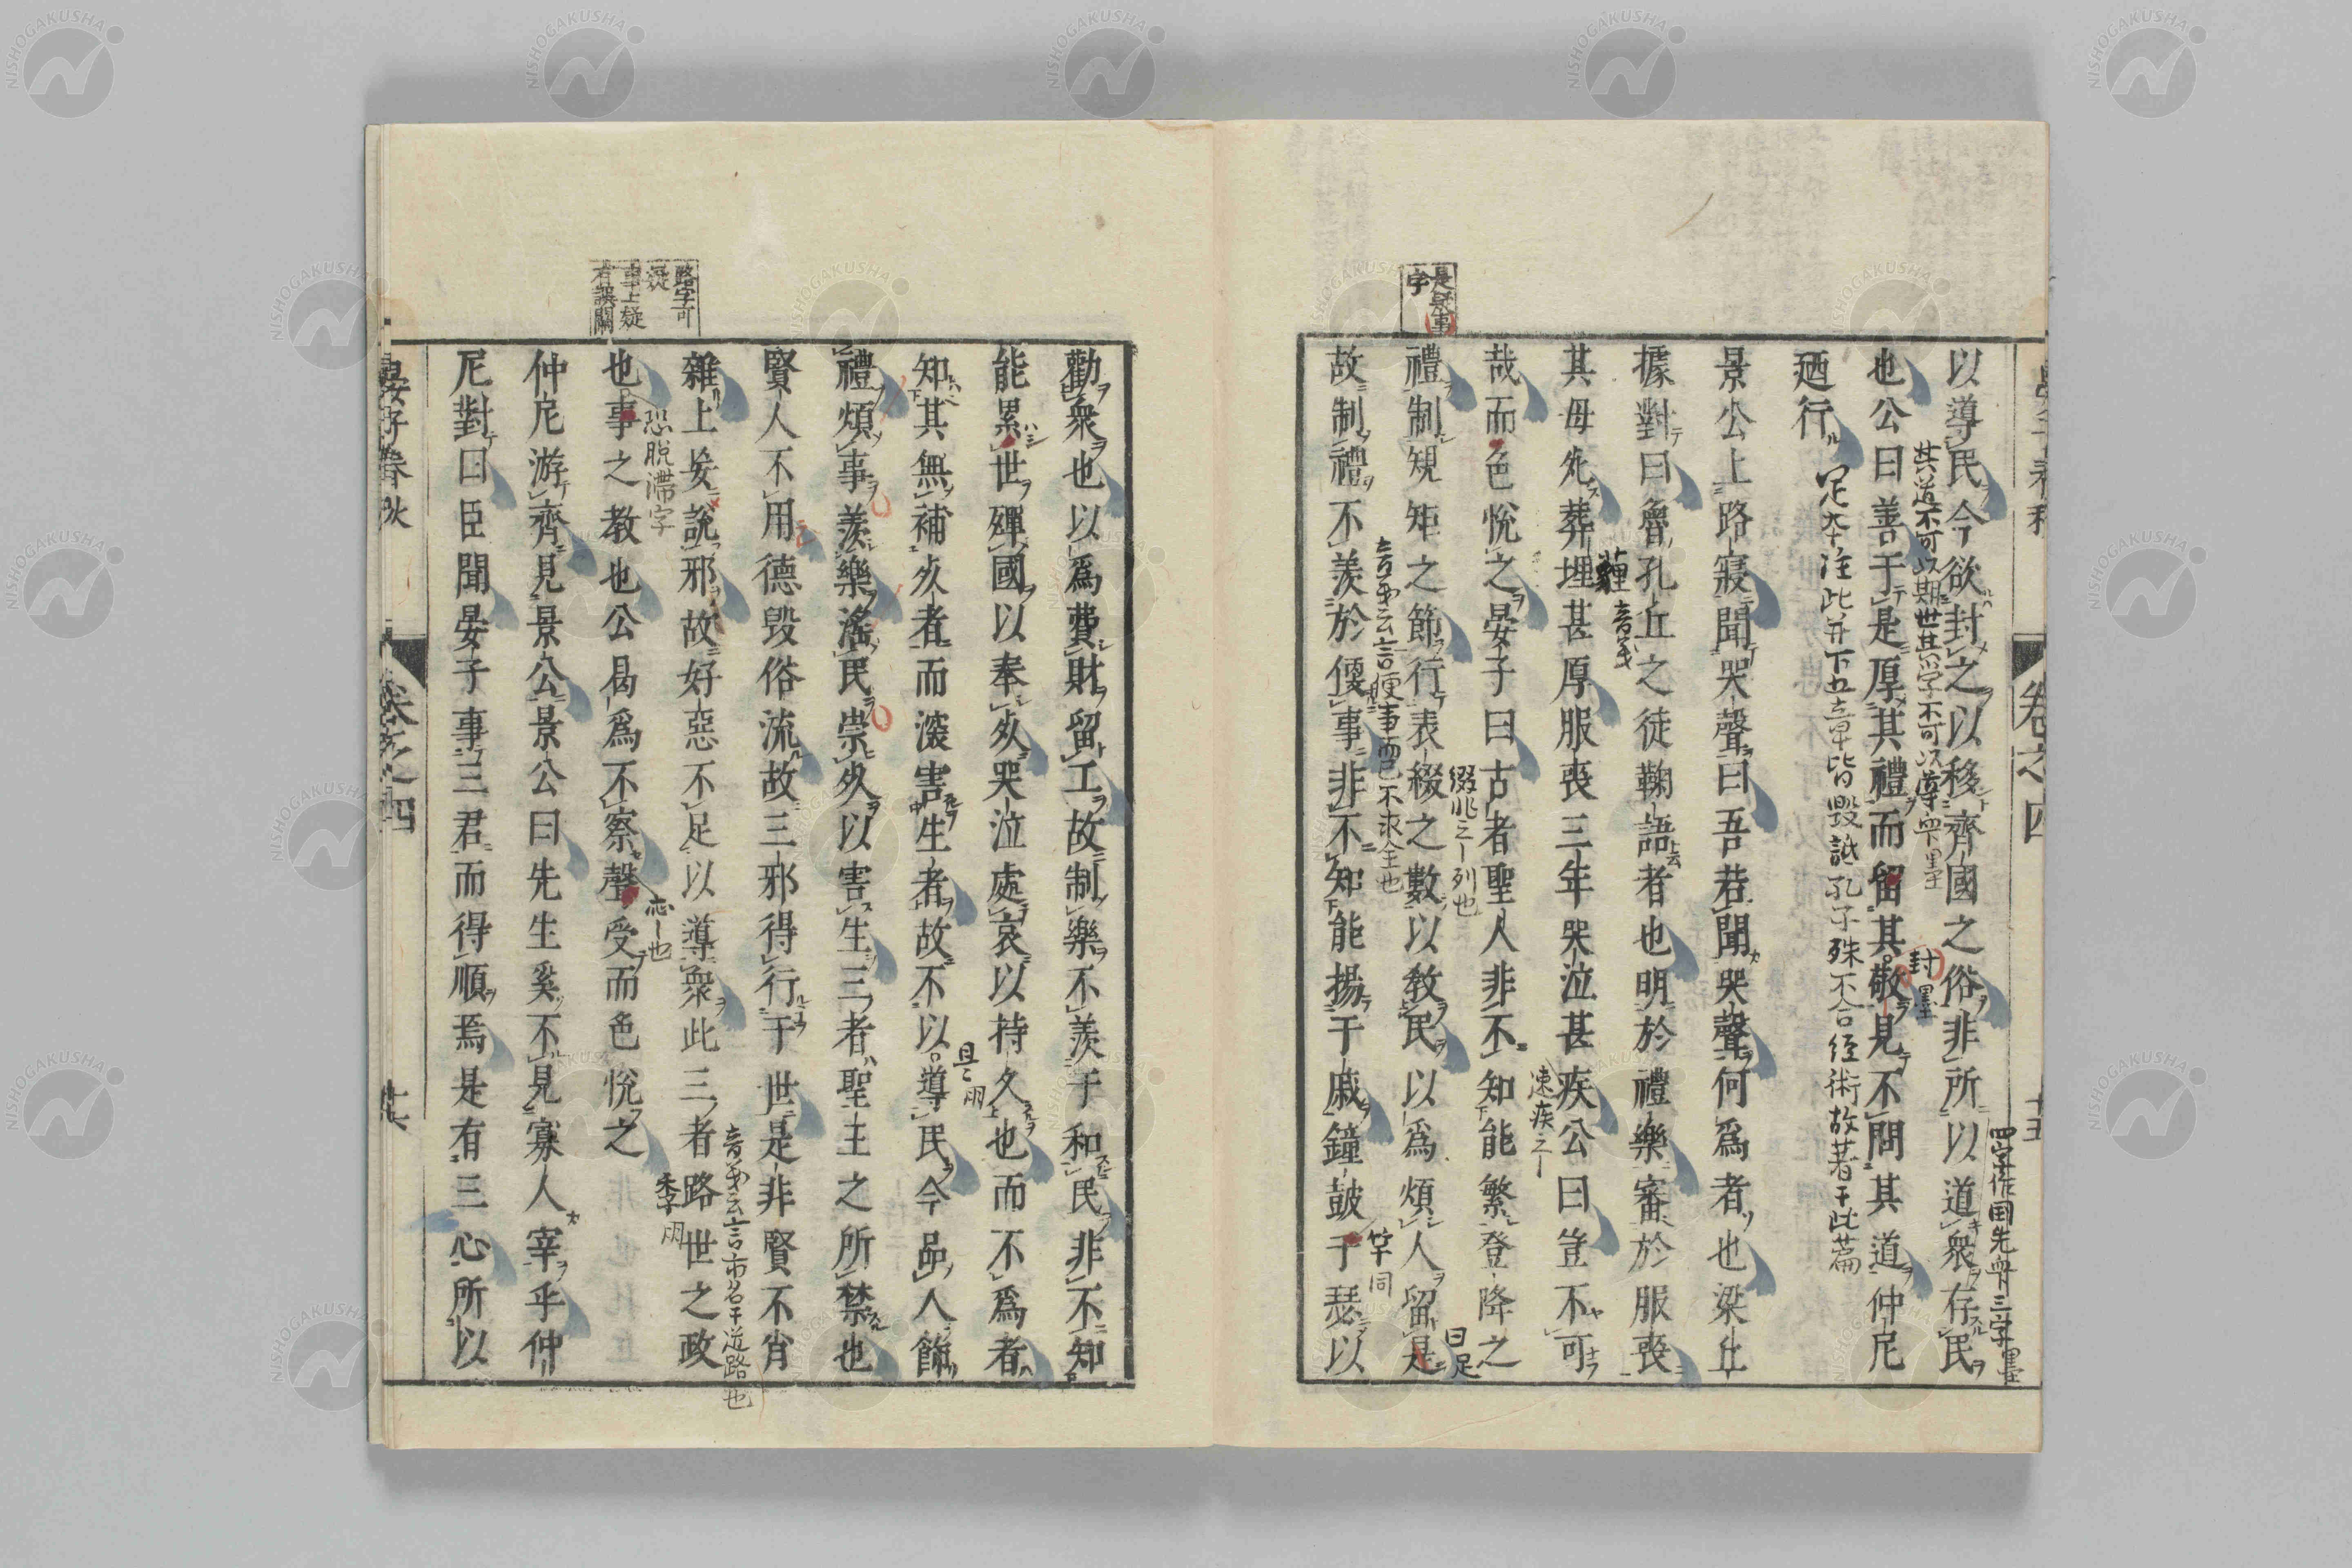 以導民今欲封之以移齊國之俗非所以道衆存民
也公曰善于是厚其禮而留其敬見不問其道仲尼
廼行
景公上路寢聞哭聲曰吾若聞哭聲何爲者也梁丘
據對曰魯孔丘之徒鞠語者也明於禮樂審於服喪
其母死葬埋甚厚服喪三年哭泣甚疾公曰豈不可
哉而色悅之晏子曰古者聖人非不知能繁登降之
禮制規矩之節行表綴之數以教民以爲煩人留是
故制禮不羨於便事非不知能揚干戚鐘皷竽瑟以
勸衆也以爲費財留工故制樂不羨于和民非不知
能累世殫國以奉死哭泣處哀以持久也而不爲者
知其無補死者而深害生者故不以導民今品人飾
禮煩事羨樂淫民崇死以害生三者聖王之所禁也
賢人不用德毀俗流故三邪得行于世是非賢不肖
雜上妄說邪故好惡不足以導衆此三者路世之政
也事之教也公曷爲不察聲受而色悅之
仲尼游齊見景公景公曰先生奚不見寡人宰乎仲
尼對曰臣聞晏子事三君而得順焉是有三心所以
晏子春秋
卷之四
其道不可以期世其学不可以導衆墨
封墨
四字作国先衆三字墨
足本注此并下五章皆毀詆孔子殊不合經術故著于此篇
薶音義
速疾之
綴兆之列也
曰足
音義云言便事而已不求全也
竽同
是疑事字
且
音義云言市名于道路也
恐脫滯字
路字可疑
事上疑有誤闕
NISHOGAKUSHA